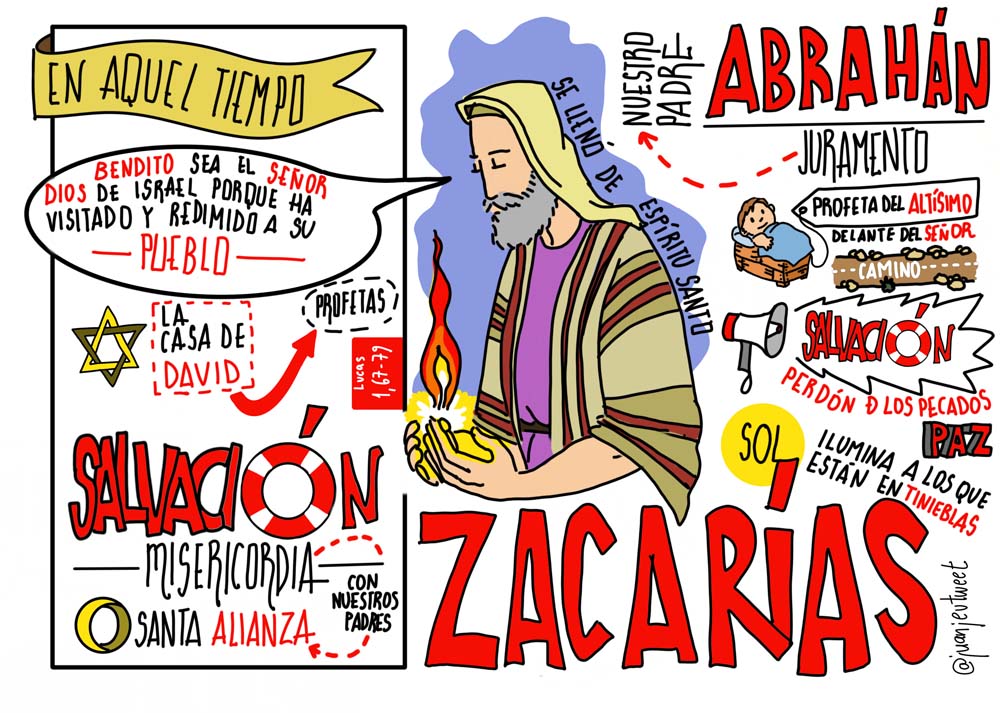 EN AQUEL TIEMPO
BENDITO SEA EL SEÑOR
DIOS DE ISRAEL PORQUE HA
VISITADO Y REDIMIDO A SU
PUEBLO
LA
CASA DE
DAVID
PROFETAS
Lucas
1,67-79
SALVACIÓN
MISERICORDIA
CON
NUESTROS
PADRES
SANTA ALIANZA
SE LLENÓ DE ESPÍRITU SANTO
ZACARÍAS
NUESTRO
PADRE
ABRAHÁN
JURAMENTO
PROFETA DEL ALTÍSIMO
DELANTE DEL SEÑOR
CAMINO
SALVACIÓN
PERDÓN Đ LOS PECADOS
PAZ
SOL
ILUMINA A LOS QUE
ESTÁN EN TINIEBLAS
@juanjevtweet